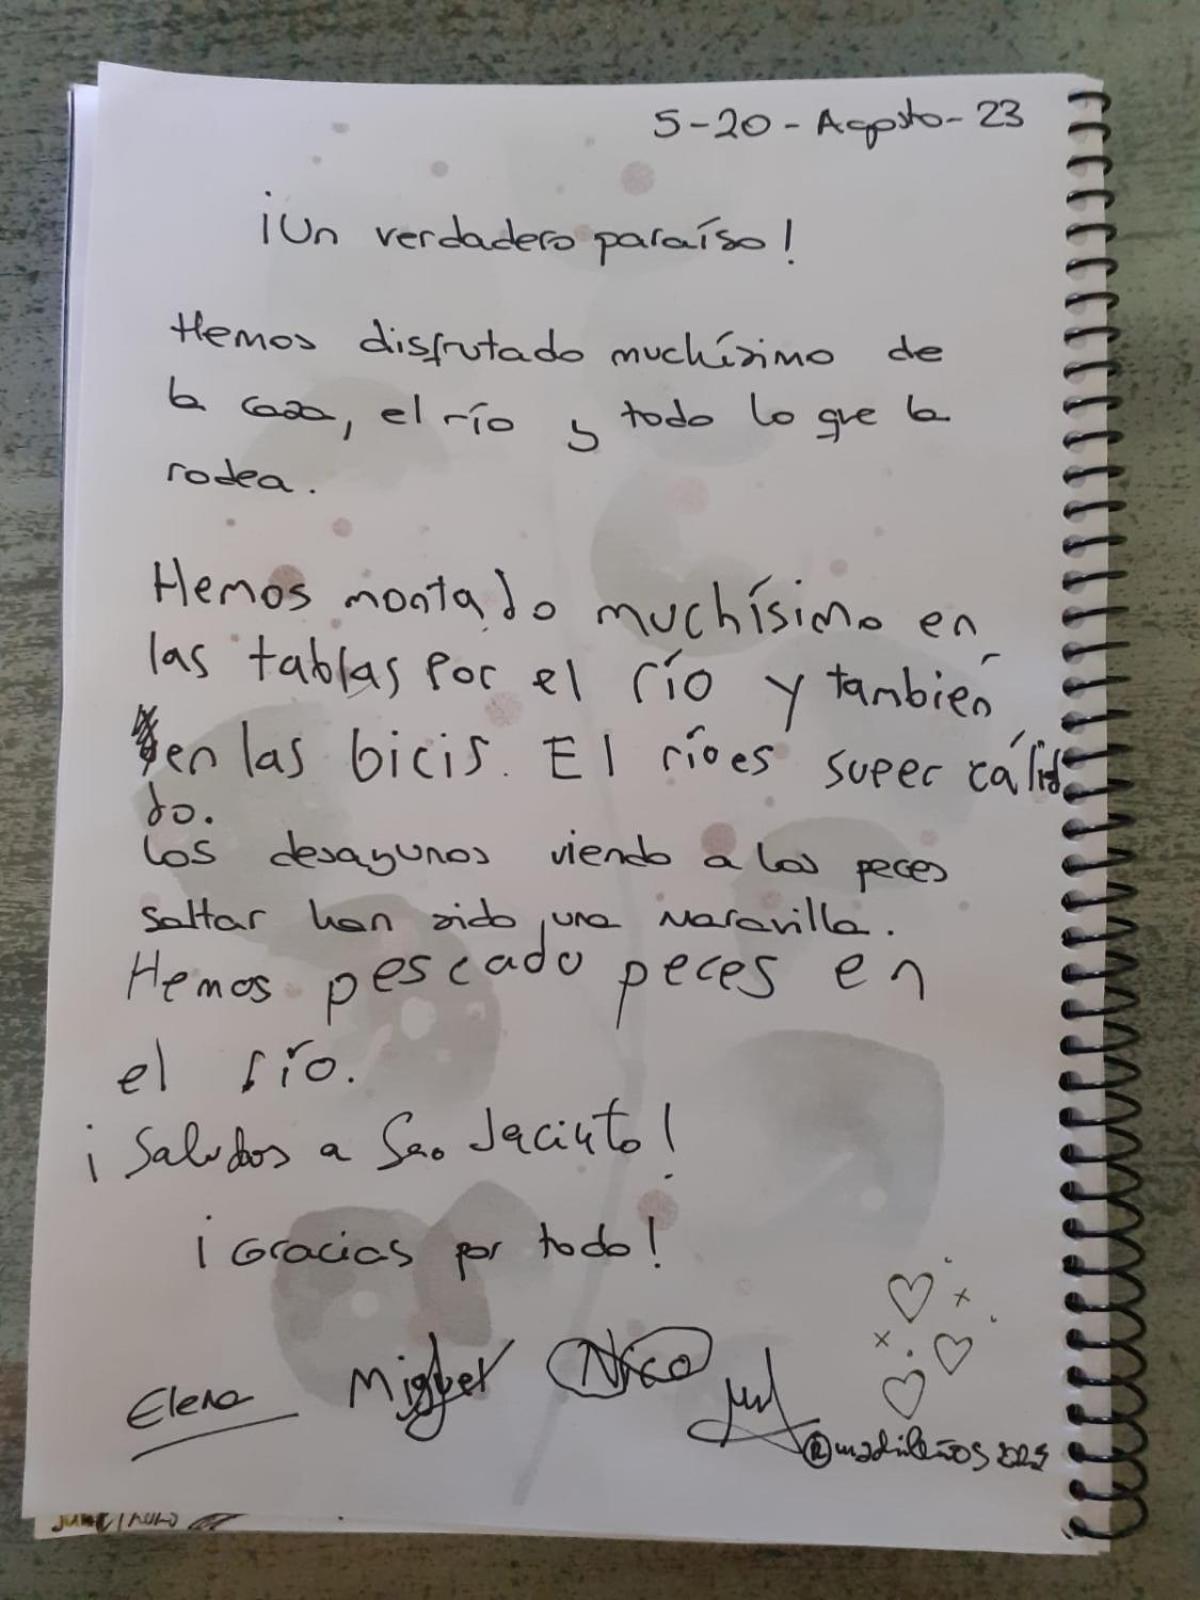 5-20-Agosto-23
¡Un verdadero paraíso!
Hemos disfrutado muchísimo de
la casa, el río y todo lo que la
rodea.
Hemos montado muchísimo en
las tablas por el río y también
en las bicis. El río es super cálid
do.
Los desayunos viendo a los peces
saltar han sido una maravilla.
Hemos pescado peces en
el río.
¡Saludos a Sao Jacinto!
¡Gracias por todo!
Elena Miguel Nico